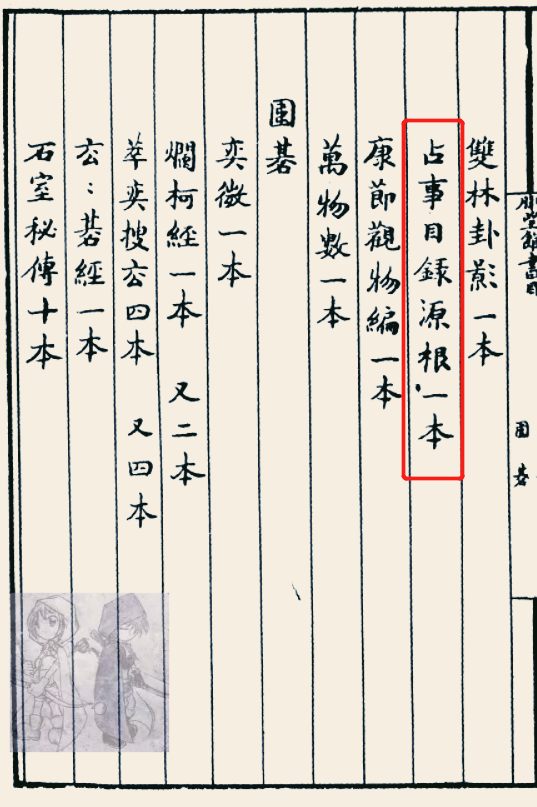 圍碁
雙林卦影一本
占事目録源根一本
康節觀物編一本
萬物數一本
圍碁
奕微一本
爛柯經一本 又二本
萃奕搜玄四本 又四本
玄：碁經一本
石室秘傳十本